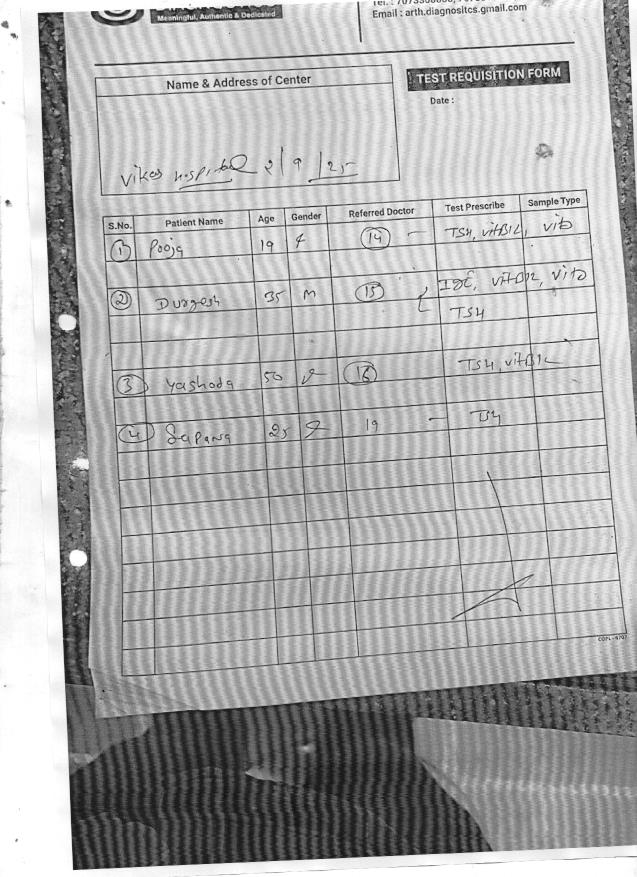 Meaningful, Authentic & Dedicated
Email : arth.diagnositcs.gmail.com
Name & Address of Center
TEST REQUISITION FORM
Date :
Vikas Hospital 2/9/25
S.No. Patient Name Age Gender Referred Doctor Test Prescribe Sample Type
1 Pooja 19 F 14 - TSH, vitB12, vitD
2 Durgesh 35 M 15 vitB12, vitD
TSH
3 Yashoda 50 16 TSH, vitB12
4 Sapana 25 F 19 - TSH